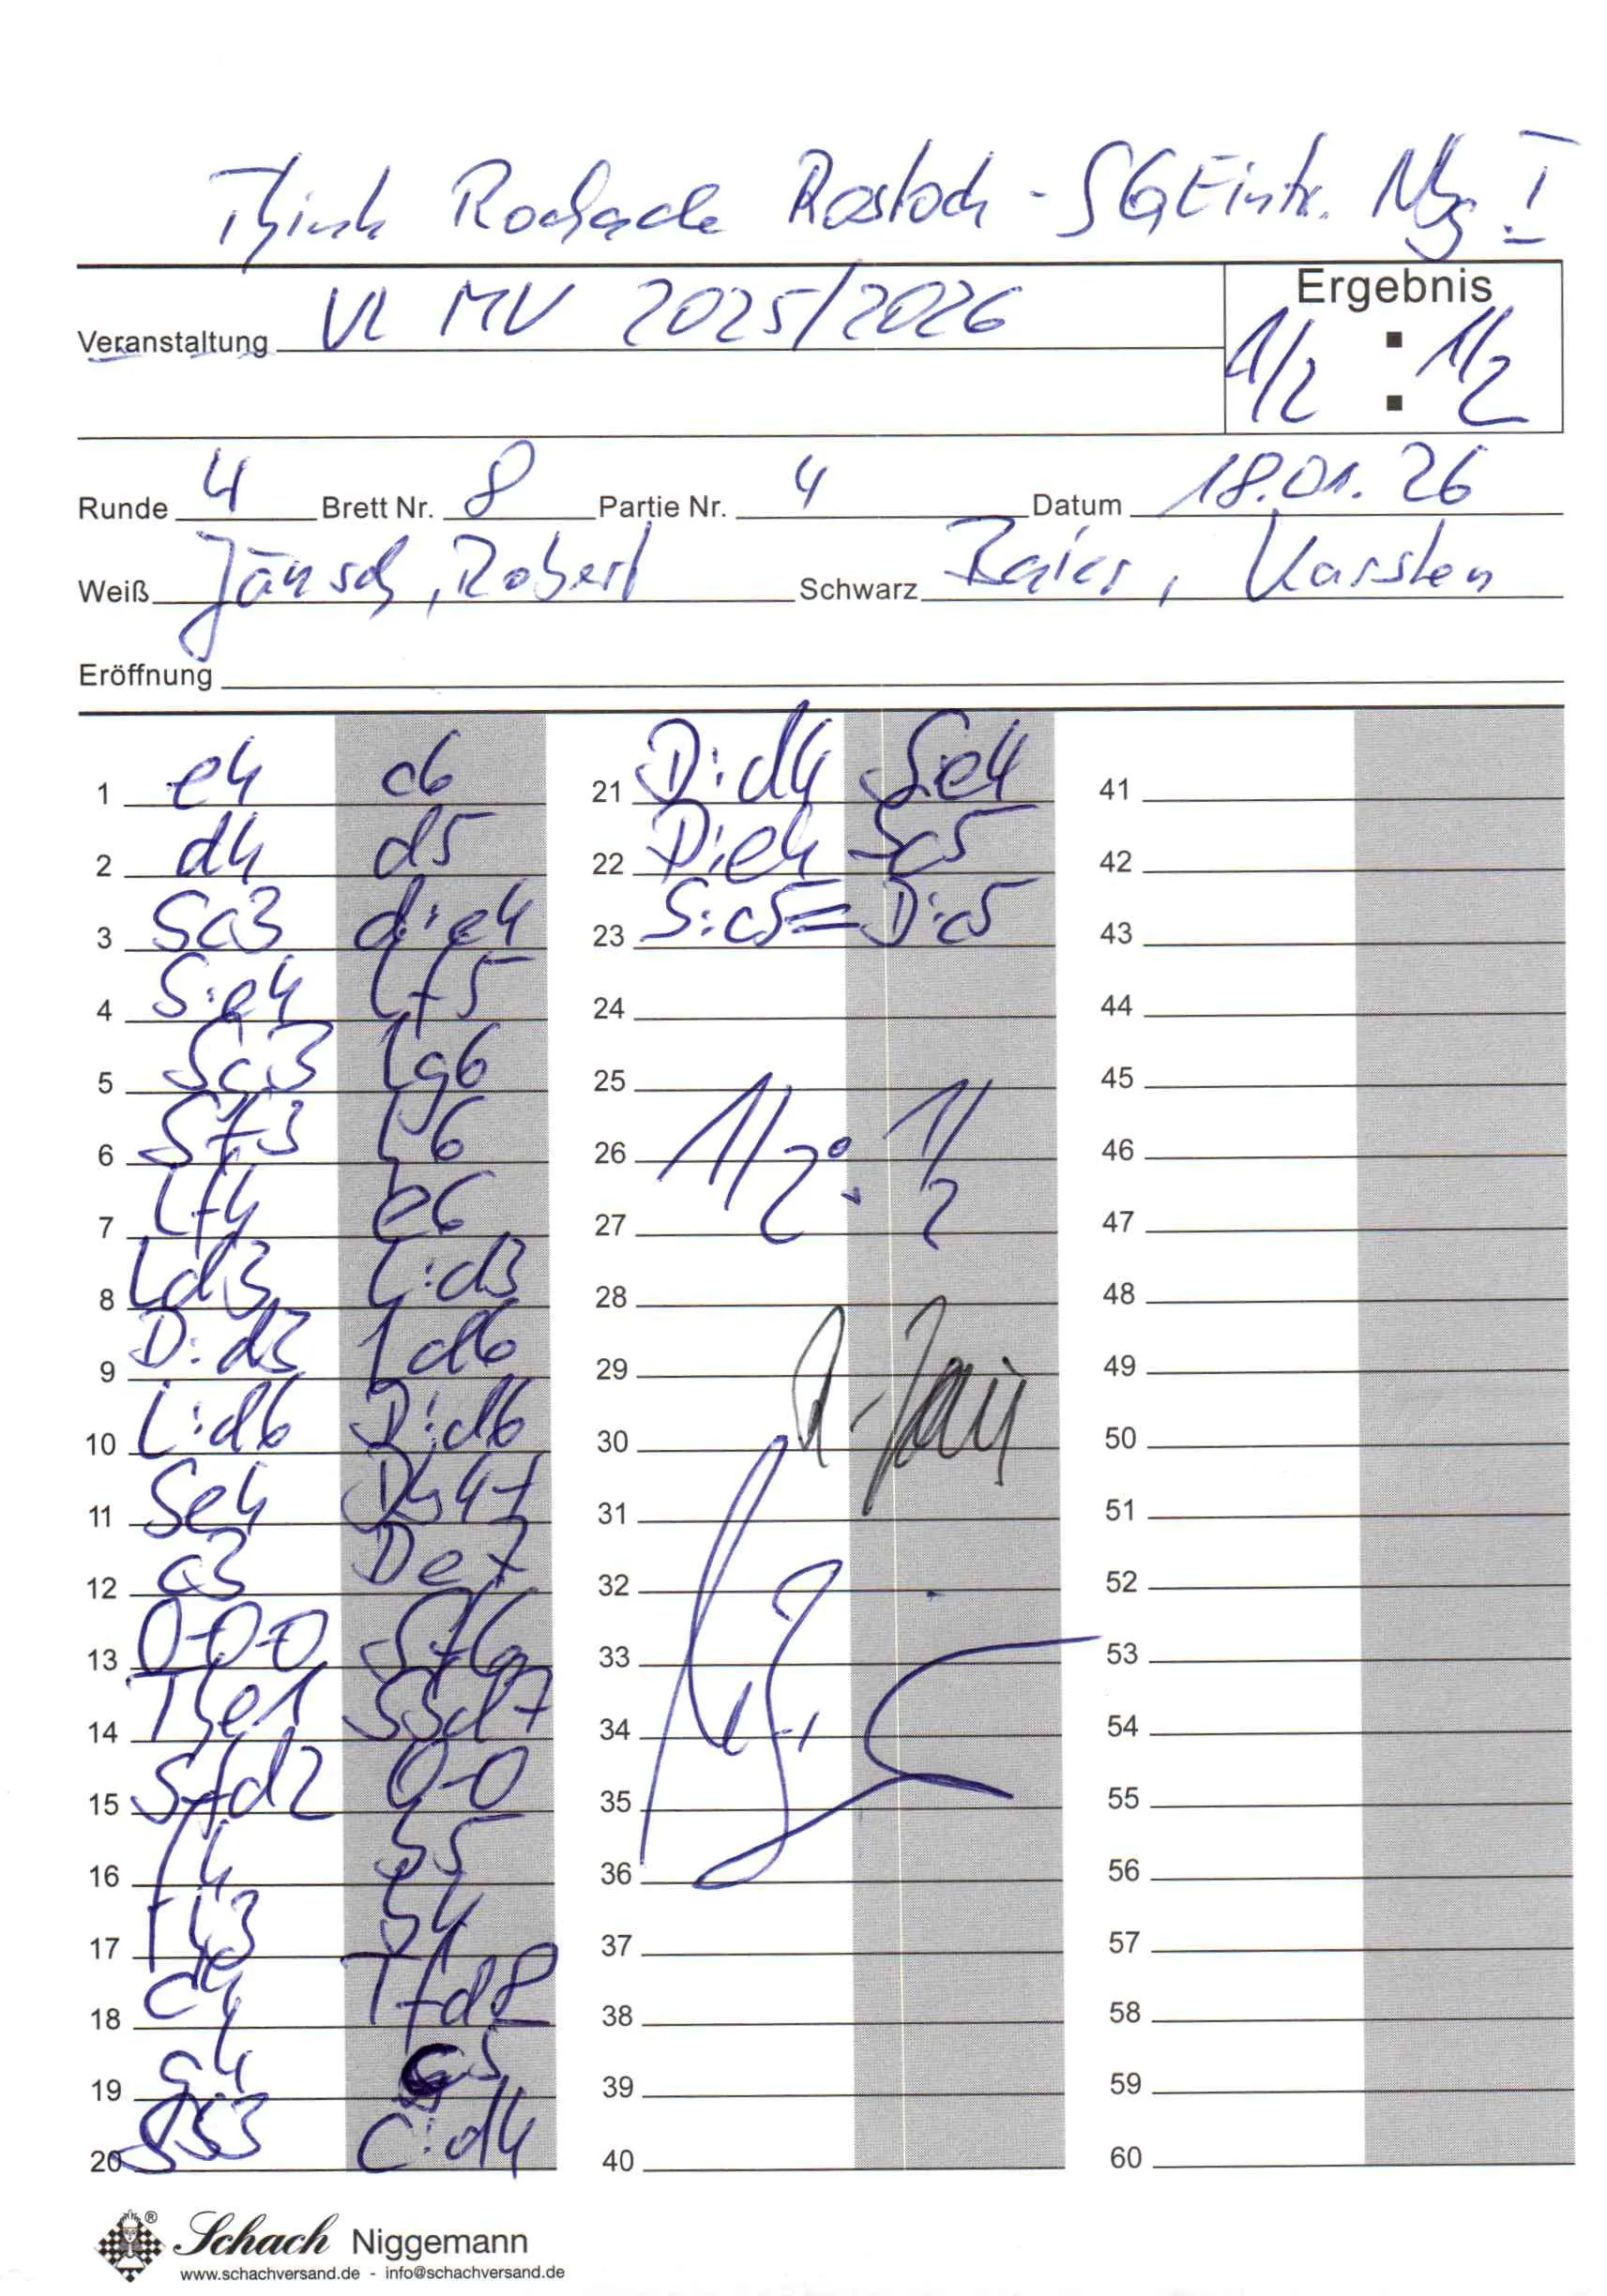 Think Rochade Rostock - SG Eintr. Nbg. I
Veranstaltung VL MV 2025/2026
Ergebnis
1/2 : 1/2
Runde 4 Brett Nr. 8 Partie Nr. 4 Datum 18.01.26
Weiß Jänsch, Robert Schwarz Baier, Karsten
Eröffnung
1 e4 c6
2 d4 d5
3 Sc3 d:e4
4 S:e4 Lf5
5 Sg3 Lg6
6 Sf3 h6
7 Lf4 e6
8 Ld3 L:d3
9 D:d3 Ld6
10 L:d6 D:d6
11 Se4 Db4+
12 c3 De7
13 0-0-0 Sf6
14 The1 Sbd7
15 Sfd2 0-0
16 f4 b5
17 Te3 b4
18 c4 Tfd8
19 g4 c5
20 Sb3 c:d4
21 D:d4 S:e4
22 D:e4 Sc5
23 S:c5= D:c5
24
25
26
27
1/2 : 1/2
28
29
30
31
32
33
34
35
36
37
38
39
40
41
42
43
44
45
46
47
48
49
50
51
52
53
54
55
56
57
58
59
60
Schach Niggemann
www.schachversand.de - info@schachversand.de